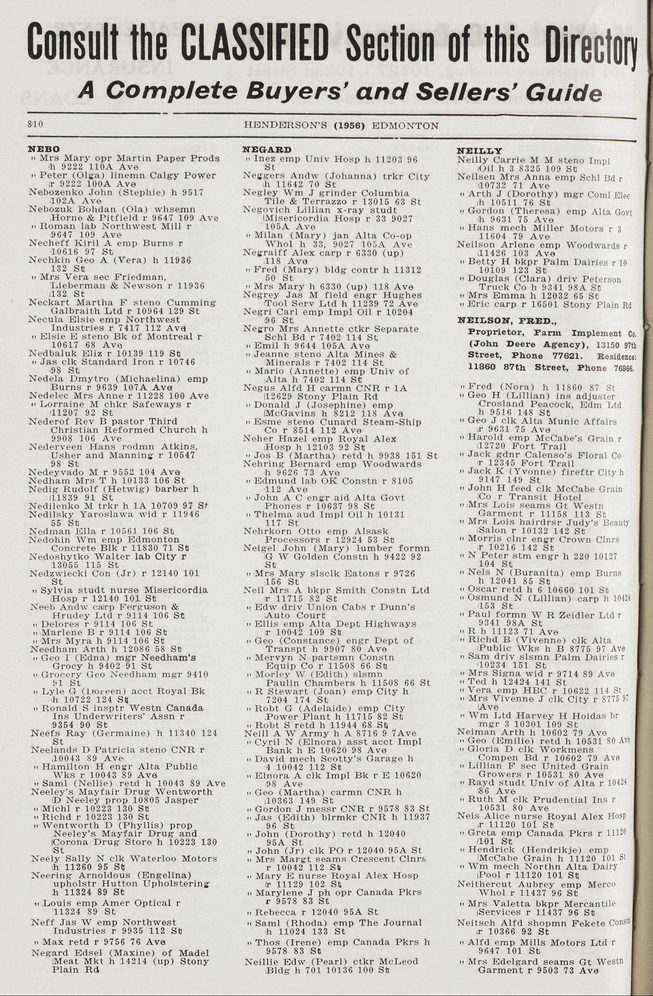 Consult the CLASSIFIED Section of this Directory
A Complete Buyers' and Sellers' Guide
810
HENDERSON'S (1956) EDMONTON
NEBO
" Mrs Mary opr Martin Paper Prods
h 9222 110A Ave
" Peter (Olga) linemn Calgy Power
r 9222 100A Ave
Nebozenko John (Stephie) h 9517
102A Ave
Nebozuk Bohdan (Ola) whsemn
Horne & Pitfield r 9647 109 Ave
" Roman lab Northwest Mill r
9647 109 Ave
Necheff Kiril A emp Burns r
10616 97 St
Nechkin Geo A (Vera) h 11936
132 St
" Mrs Vera sec Friedman,
Lieberman & Newson r 11936
132 St
Neckart Martha F steno Cumming
Galbraith Ltd r 10964 129 St
Necula Elsie emp Northwest
Industries r 7417 112 Ave
" Elsie E steno Bk of Montreal r
10617 68 Ave
Nedbaluk Eliz r 10139 119 St
" Jas clk Standard Iron r 10746
98 St
Nedela Dmytro (Michaelina) emp
Burns r 9639 107A Ave
Nedelec Mrs Anne r 11228 100 Ave
" Lorraine M chkr Safeways r
11207 92 St
Nederof Rev B pastor Third
Christian Reformed Church h
9908 106 Ave
Nederveen Hans rodmn Atkins,
Usher and Manning r 10547
98 St
Nedeyvado M r 9552 104 Ave
Nedham Mrs T h 10133 106 St
Nedig Rudolf (Hetwig) barber h
11839 91 St
Nedilenko M trkr h 1A 10709 97 St
Nedilsky Yaroslawa wid r 11946
55 St
Nedman Ella r 10561 106 St
Nedohin Wm emp Edmonton
Concrete Blk r 11830 71 St
Nedoshytko Walter lab City r
13055 115 St
Nedzwiecki Con (Jr) r 12140 101
St
" Sylvia studt nurse Misericordia
Hosp r 12140 101 St
Neeb Andw carp Ferguson &
Hrudey Ltd r 9114 106 St
" Delores r 9114 106 St
" Marlene B r 9114 106 St
" Mrs Myra h 9114 106 St
Needham Arth h 12086 58 St
" Geo I (Edna) mgr Needham's
Grocy h 9402 91 St
" Grocery Geo Needham mgr 9410
91 St
" Lyle G (Doreen) acct Royal Bk
h 10722 124 St
" Ronald S insptr Westn Canada
Ins Underwriters' Assn r
9354 90 St
Neefs Ray (Germaine) h 11340 124
St
Neelands D Patricia steno CNR r
10043 89 Ave
" Hamilton H engr Alta Public
Wks r 10043 89 Ave
" Saml (Nellie) retd h 10043 89 Ave
Neeley's Mayfair Drug Wentworth
D Neeley prop 10805 Jasper
" Michl r 10223 130 St
" Richd r 10223 130 St
" Wentworth D (Phyllis) prop
Neeley's Mayfair Drug and
Corona Drug Store h 10223 130
St
Neely Sally N clk Waterloo Motors
h 11260 95 St
Neering Arnoldous (Engelina)
upholstr Hutton Upholstering
h 11324 89 St
" Louis emp Amer Optical r
11324 89 St
Neff Jas W emp Northwest
Industries r 9935 112 St
" Max retd r 9756 76 Ave
Negard Edsel (Maxine) of Madel
Meat Mkt h 14214 (up) Stony
Plain Rd
NEGARD
" Inez emp Univ Hosp h 11203 96
St
Neggers Andw (Johanna) trkr City
h 11642 70 St
Negley Wm J grinder Columbia
Tile & Terrazzo r 13015 63 St
Negovich Lillian x-ray studt
Misericordia Hosp r 33 9027
105A Ave
" Milan (Mary) jan Alta Co-op
Whol h 33, 9027 105A Ave
Negraiff Alex carp r 6330 (up)
118 Ave
" Fred (Mary) bldg contr h 11312
50 St
" Mrs Mary h 6330 (up) 118 Ave
Negrey Jas M field engr Hughes
Tool Serv Ltd h 11239 72 Ave
Negri Carl emp Impl Oil r 10204
96 St
Negro Mrs Annette ctkr Separate
Schl Bd r 7402 114 St
" Emil h 9644 105A Ave
" Jeanne steno Alta Mines &
Minerals r 7402 114 St
" Mario (Annette) emp Univ of
Alta h 7402 114 St
Negus Alfd H carmn CNR r 1A
12629 Stony Plain Rd
" Donald J (Josephine) emp
McGavins h 8212 118 Ave
" Esme steno Cunard Steam-Ship
Co r 8514 112 Ave
Neher Hazel emp Royal Alex
Hosp h 12103 92 St
" Jos B (Martha) retd h 9938 151 St
Nehring Bernard emp Woodwards
h 9626 73 Ave
" Edmund lab OK Constn r 8105
112 Ave
" John A C engr aid Alta Govt
Phones r 10637 98 St
" Thelma aud Impl Oil h 10131
117 St
Nehrkorn Otto emp Alsask
Processors r 12924 53 St
Neigel John (Mary) lumber formn
G W Golden Constn h 9422 92
St
" Mrs Mary slsclk Eatons r 9726
156 St
Neil Mrs A bkpr Smith Constn Ltd
r 11715 82 St
" Edw driv Union Cabs r Dunn's
Auto Court
" Ellis emp Alta Dept Highways
r 10042 109 St
" Geo (Constance) engr Dept of
Transpt h 9907 80 Ave
" Mervyn N partsmn Constn
Equip Co r 11508 66 St
" Morley W (Edith) slsmn
Paulin Chambers h 11508 66 St
" R Stewart (Joan) emp City h
7204 174 St
" Robt G (Adelaide) emp City
Power Plant h 11715 82 St
" Robt S retd h 11944 68 St
Neill A W Army h A 8716 9 7Ave
" Cyril N (Elnora) asst acct Impl
Bank h E 10620 98 Ave
" David mech Scotty's Garage h
4 10042 112 St
" Elnora A clk Impl Bk r E 10620
98 Ave
" Geo (Martha) carmn CNR h
10363 149 St
" Gordon J messr CNR r 9578 83 St
" Jas (Edith) blrmkr CNR h 11937
96 St
" John (Dorothy) retd h 12040
95A St
" John (Jr) clk PO r 12040 95A St
" Mrs Margt seams Crescent Clnrs
r 10042 112 St
" Mary E nurse Royal Alex Hosp
r 11129 102 St
" Marylene J ph opr Canada Pkrs
r 9578 83 St
" Rebecca r 12040 95A St
" Saml (Rhoda) emp The Journal
h 11024 133 St
" Thos (Irene) emp Canada Pkrs h
9578 83 St
Neillie Edw (Pearl) ctkr McLeod
Bldg h 701 10136 100 St
NEILLY
Neilly Carrie M M steno Impl
Oil h 3 8325 109 St
Neilsen Mrs Anna emp Schl Bd r
10732 71 Ave
" Arth J (Dorothy) mgr Coml Elec
h 10511 76 St
" Gordon (Theresa) emp Alta Govt
h 9631 75 Ave
" Hans mech Miller Motors r 3
11604 79 Ave
Neilson Arlene emp Woodwards r
11426 103 Ave
" Betty H bkpr Palm Dairies r 10
10109 123 St
" Douglas (Clara) driv Peterson
Truck Co h 9341 98A St
" Mrs Emma h 12032 65 St
" Eric carp r 16501 Stony Plain Rd
NEILSON, FRED.,
Proprietor, Farm Implement Co.
(John Deere Agency), 13150 97th
Street, Phone 77621. Residence:
11860 87th Street, Phone 76866.
" Fred (Nora) h 11860 87 St
" Geo H (Lillian) ins adjuster
Crosland Peacock, Edm Ltd
h 9516 148 St
" Geo J clk Alta Munic Affairs
r 9631 75 Ave
" Harold emp McCabe's Grain r
12720 Fort Trail
" Jack gdnr Calenso's Floral Co
r 12345 Fort Trail
" Jack K (Yvonne) fireftr City h
9147 149 St
" John H feed clk McCabe Grain
Co r Transit Hotel
" Mrs Lois seams Gt Westn
Garment r 11158 113 St
" Mrs Lois hairdrsr Judy's Beauty
Salon r 10132 142 St
" Morris clnr engr Crown Clnrs
r 10216 142 St
" N Peter stm engr h 220 10127
104 St
" Nels N (Buranita) emp Burns
h 12041 85 St
" Oscar retd h 6 10660 101 St
" Osmund N (Lillian) carp h 10424
153 St
" Paul formn W R Zeidler Ltd r
9341 98A St
" R h 11123 71 Ave
" Richd B (Vivenne) clk Alta
Public Wks h B 8775 97 Ave
" Sam driv slsmn Palm Dairies r
10234 151 St
" Mrs Signa wid r 9714 89 Ave
" Ted h 12424 141 St
" Vera emp HBC r 10622 114 St
" Mrs Vivenne J clk City r 8775 97
Ave
" Wm Ltd Harvey H Hoidas br
mgr 3 10301 109 St
Neiman Arth h 10602 79 Ave
" Geo (Emilie) retd h 10531 80 Ave
" Gloria D clk Workmens
Compen Bd r 10602 79 Ave
" Lillian F sec United Grain
Growers r 10531 80 Ave
" Rayd studt Univ of Alta r 10424
86 Ave
" Ruth M clk Prudential Ins r
10531 80 Ave
Neis Alice nurse Royal Alex Hosp
r 11120 101 St
" Greta emp Canada Pkrs r 11120
101 St
" Hendrick (Hendrikje) emp
McCabe Grain h 11120 101 St
" Wm mech Northn Alta Dairy
Pool r 11120 101 St
Neithercut Aubrey emp Merco
Whol r 11437 96 St
" Mrs Valetta bkpr Mercantile
Services r 11437 96 St
Neitsch Alfd shopmn Fekete Constn
r 10366 92 St
" Alfd emp Mills Motors Ltd r
9647 101 St
" Mrs Edelgard seams Gt Westn
Garment r 9503 73 Ave